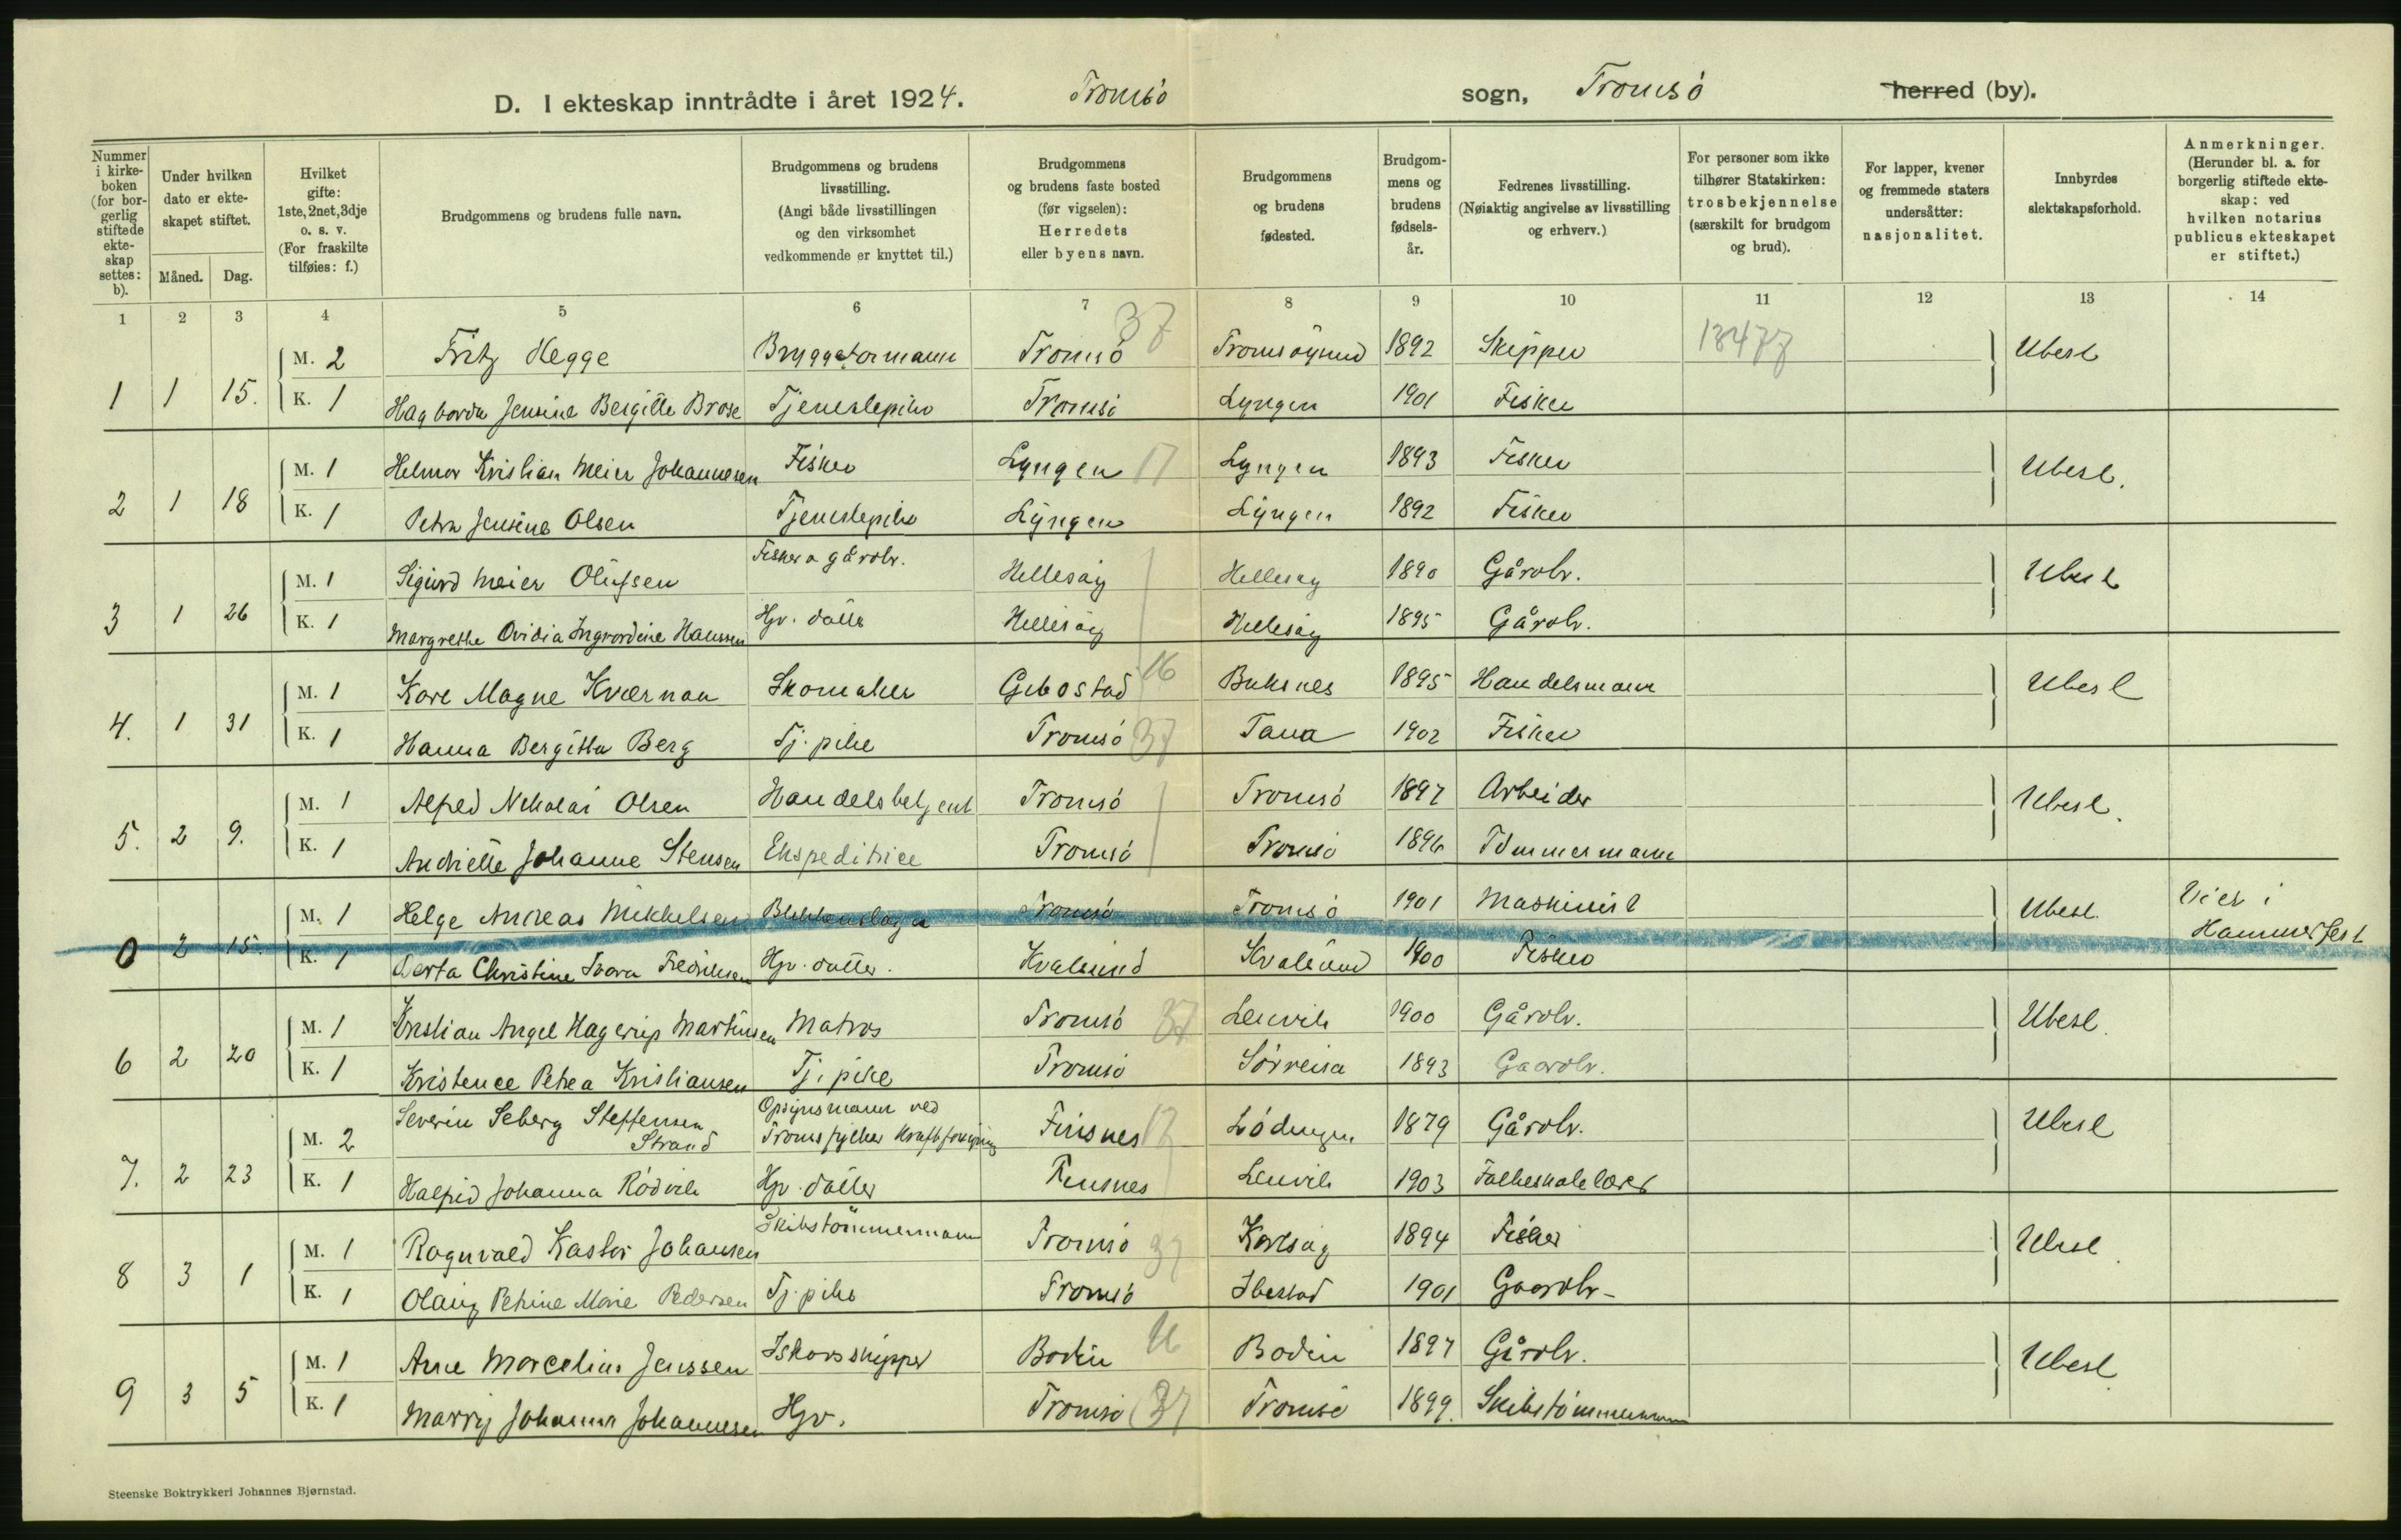 D. I ekteskap inntrådte i året 1924. Tromsö sogn, Tromsö herred (by).
Nummer i kirke-boken (for bor-gerlig stiftede ekte-skap settes: b).
Under hvilken dato er ekte-skapet stiftet.
Måned. Dag.
Hvilket gifte: 1ste, 2net, 3dje o. s. v. (For fraskilte tilføies: f.)
Brudgommens og brudens fulle navn.
Brudgommens og brudens livsstilling. (Angi både livsstillingen og den virksomhet vedkommende er knyttet til.)
Brudgommens og brudens faste bosted (før vigselen): Herredets eller byens navn.
Brudgommens og brudens fødested.
Brudgom-mens og brudens fødsels-år.
Fedrenes livsstilling. (Nøiaktig angivelse av livsstilling og erhverv.)
For personer som ikke tilhører Statskirken: trosbekjennelse (særskilt for brudgom og brud).
For lapper, kvener og fremmede staters undersåtter: nasjonalitet.
Innbyrdes slektskapsforhold.
Anmerkninger. (Herunder bl. a. for borgerlig stiftede ekte-skap: ved hvilken notarius publicus ekteskapet er stiftet.)
1 2 3 4 5 6 7 8 9 10 11 12 13 14
37
M. 2 Fritz Hegge Bryggeformann Tromsö Tromsöysund 1892 Skipper 13477 Ubesl
1 1 15. K. 1 Hagborda Jensine Bergitte Brose Tjenestepike Tromsö Lyngen 1901 Fisker
M. 1 Helmer Kristian Meier Johannesen Fisker Lyngen 17 Lyngen 1893 Fisker Ubesl.
2 1 18 K. 1 Petra Jensine Olsen Tjenestepike Lyngen Lyngen 1892 Fisker
M. 1 Sigurd Meier Olufsen Fisker o gårdbr. Hellesöy Hellesöy 1890 Gårdbr. Ubesl
3 1 26 K. 1 Margrethe Ovidia Ingvardine Hanssen Hjv. datter Hellesöy Hellesöy 1895 Gårdbr.
M. 1 Kare Magne Kværnan Skomaker Gibostad 16 Buksnes 1895 Handelsmann Ubesl
4. 1 31 K. 1 Hanna Bergitta Berg Tj. pike Tromsö 37 Tana 1902 Fisker
M. 1 Alfred Nikolai Olsen Handelsbetjent Tromsö Tromsö 1897 Arbeider Ubesl.
5. 2 9. K. 1 Andriette Johanne Stensen Ekspeditrice Tromsö Tromsö 1896 Tömmermann
M. 1 Helge Andreas Mikkelsen Blikkenslager Tromsö Tromsö 1901 Maskinist Ubesl. Viet i
0 2 15. K. 1 Christine Fredriksen Hjv. datter. Kvalsund Kvalsund 1900 Fisker Hammerfest
M. 1 Kristian Angel Hagerup Martinsen Matros Tromsö 37 Lenvik 1900 Gårdbr. Ubesl.
6 2 20 K. 1 Kristence Petrea Kristiansen Tj. pike Tromsö Sörreisa 1893 Gaardbr.
Severin Seberg Steffensen Opsynsmann ved
M. 2 Strand Tromsfylkes Kraftforsyning Finsnes 17 Lödingen 1879 Gårdbr. Ubesl
7. 2 23 K. 1 Halfrid Johanna Rödvik Hjv. datter Finsnes Lenvik 1903 Folkeskolelærer
M. 1 Ragnvald Kastor Johansen Skibstömmermann Tromsö 37 Karlsöy 1894 Fisker Ubesl.
8 3 1 K. 1 Olaug Petrine Marie Pedersen Tj. pike Tromsö Ibestad 1901 Gaardbr-
M. 1 Arne Marcelius Jenssen Ishavsskipper Bodin Bodin 1897 Gårdbr. Ubesl.
9 3 5 K. 1 Marry Johanna Johannesen Hjv. Tromsö 37 Tromsö 1899. Skibstömmermann
Steenske Boktrykkeri Johannes Bjørnstad.